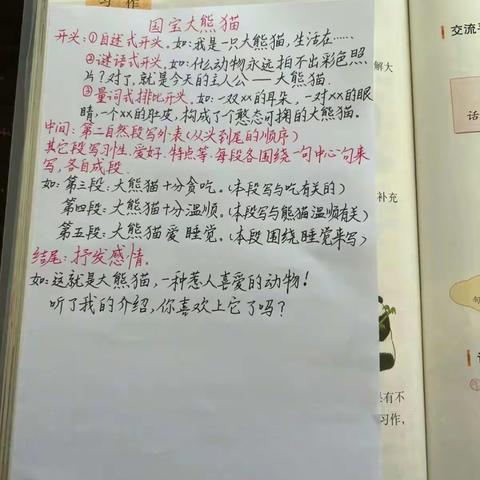 习作
国宝大熊猫
开头:①自述式开头.如:我是一只大熊猫,生活在……
②谜语式开头.如:什么动物永远拍不出彩色照
片?对了,就是今天的主人公——大熊猫.
③量词式排比开头.如:一双xx的耳朵,一对xx的眼
睛,一个xx的肚皮,构成了个憨态可掬的大熊猫.
中间:第二自然段写外表(从头到尾的顺序)
其它段写习性.爱好.特点等.每段各围绕一句中心句来
写,各自成段.
如:第三段:大熊猫十分贪吃。(本段写与吃有关的)
第四段:大熊猫十分温顺。(本段写与熊猫温顺有关)
第五段:大熊猫爱睡觉。(本段围绕睡觉来写)
结尾:抒发感情。
如:这就是大熊猫,一种惹人喜爱的动物!
听了我的介绍,你喜欢上它了吗?
解大
补充
是有不
习作,
交流
话
句
①